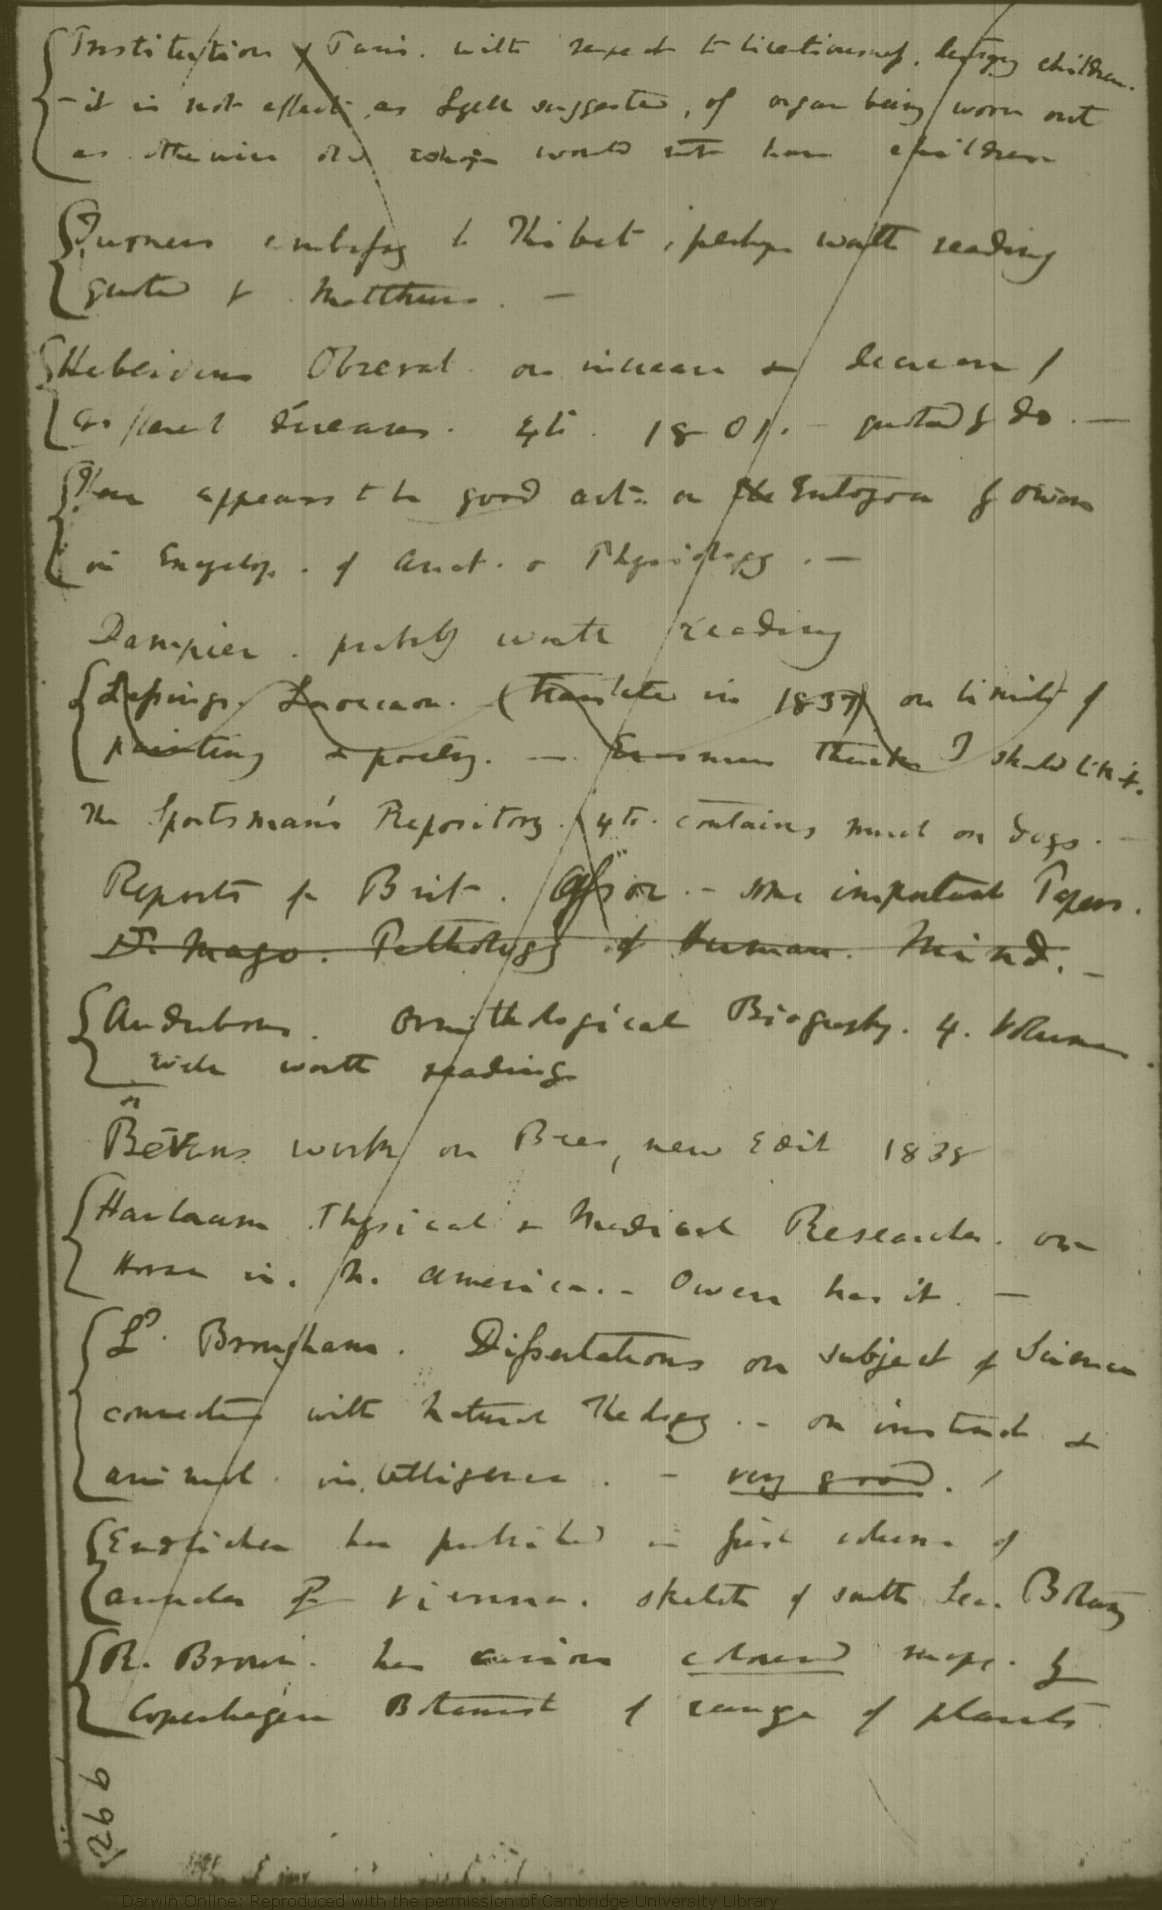 Institution Paris. with respect to licentiousness. destroy children.
– it is not effect, as Lyell suggested, of organ being worn out
as otherwise old would not have children
Turners embassy to Thibet, perhaps worth reading
quoted by Matthews. —
Heberdens Observat. on increase & decrease of
different diseases. 4to. 1801. – quoted by do. —
There appears to be good art: on Entozoa by Owen
in Encyclop. of Anat. & Physiology. —
Dampier. probably worth reading
Lessings. Laocoon. (translated in 1837) on limits of
painting & poetry. — Erasmus thinks I should like it.
The Sportsman's Repository. 4to. contains much on dogs. —
Reports of Brit. Assoc. – some important Papers.
Dr. Mayo. Pathology of Human. Mind. —
Audubons. Ornithological Biography. 4. Volumes.
well worth reading
Bevans work on Bees, new Edit 1838
Harlaam Physical & Medical Researches. on
Horse in. N. America. – Owen has it. —
Ld. Brougham. Dissertations on subject of Science
connected with Natural Theology. – on instinct &
animal intelligence. – very good. /
Endlicher has published in first volume of
annals of Vienna. sketch of South Sea. Botany
R. Brown. has curious coloured maps. by
Copenhagen Botanist of range of plants
266
Darwin Online: Reproduced with the permission of Cambridge University Library